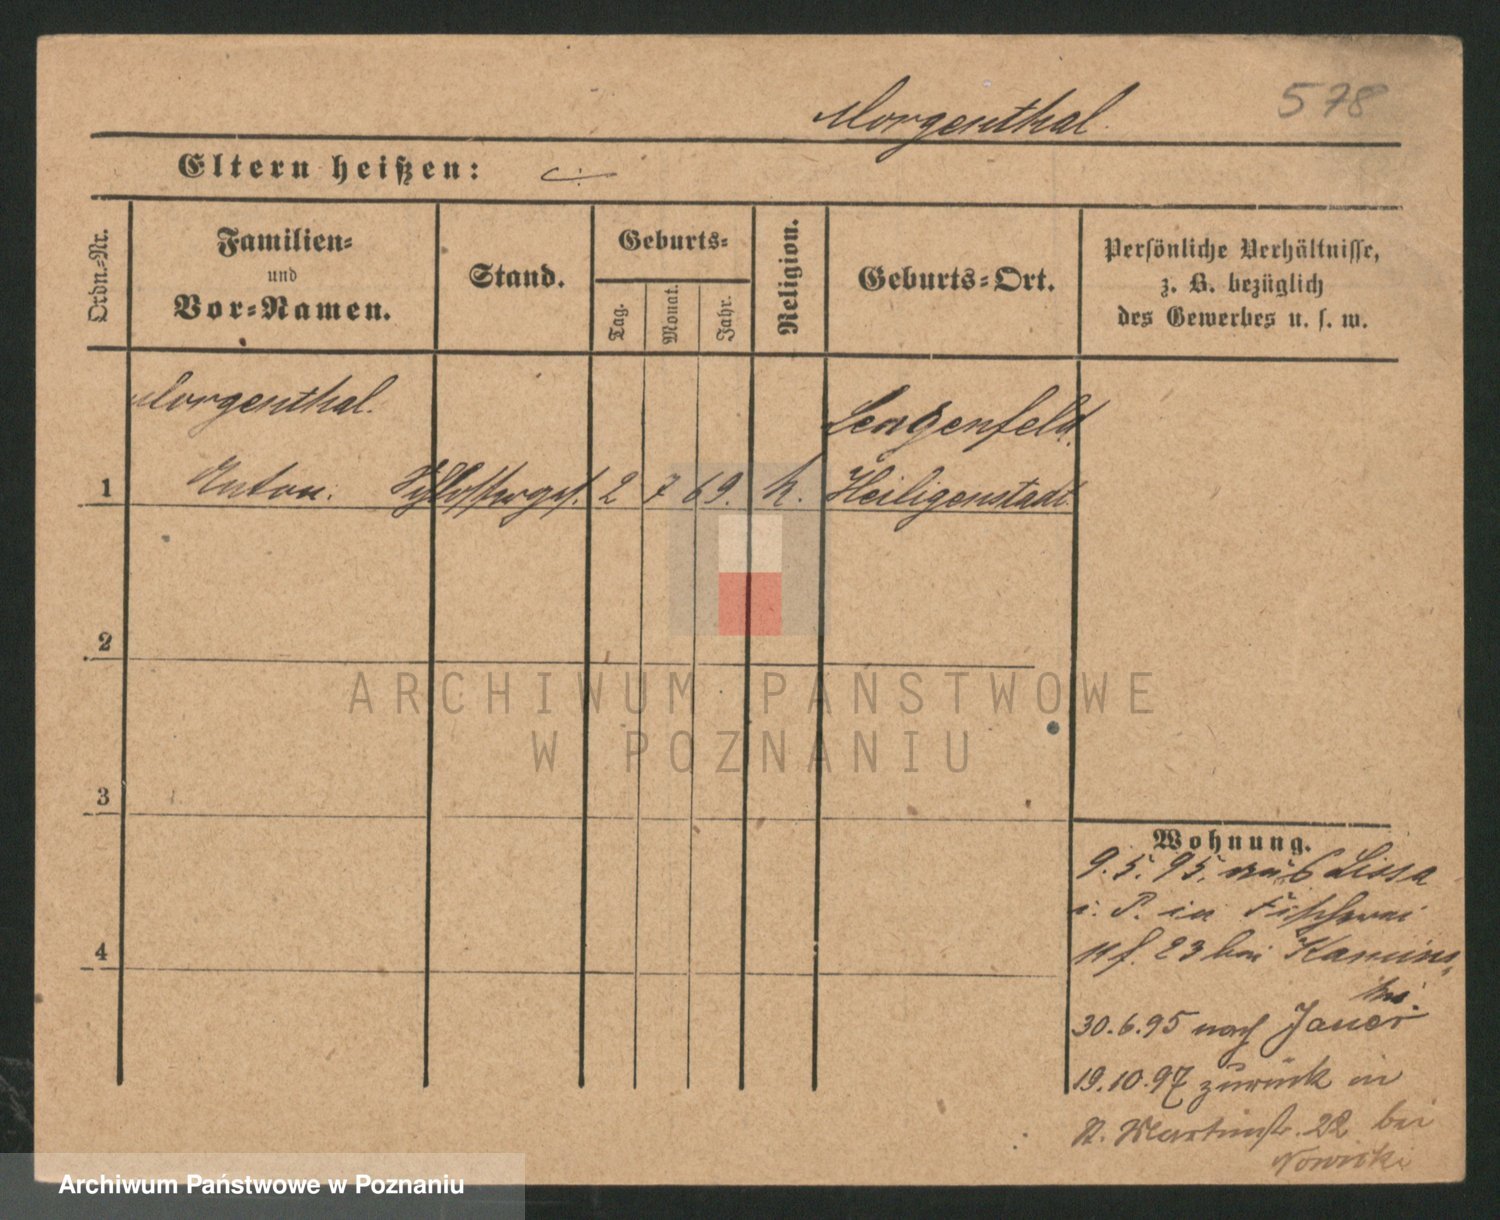 578
Morgenthal.
Eltern heißen:
Ordn.-Nr.
Familien-
und
Vor-Namen.
Stand.
Geburts-
Tag.
Monat.
Jahr.
Religion.
Geburts-Ort.
Persönliche Verhältnisse,
z. B. bezüglich
des Gewerbes u. s. w.
Morgenthal.
Lengenfeld.
1 Anton. Schlosserges. 2 7 69. k. Heiligenstadt.
2
3
4
Wohnung.
9.5.95. aus Lissa
i. P. in Fischerei
23 bei Kamins-
ki.
30.6.95 nach Jauer
19.10.97 zurück in
St. Martinstr. 22 bei
Nowicki
ARCHIWUM PAŃSTWOWE
W POZNANIU
Archiwum Państwowe w Poznaniu